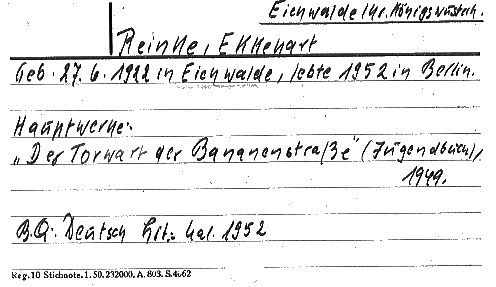 Eichwalde Kr. Königswusterh.
Reinke, Ekkehart
Geb. 27.6.1922 in Eichwalde, lebte 1952 in Berlin.
Hauptwerke:
„Der Torwart der Bananenstraße" (Jugendbuch),
1949.
B.Q. Deutsch. Lit. Kal. 1952
Reg. 10 Stichnote. 1. 50. 232000. A. 803. S. 4062